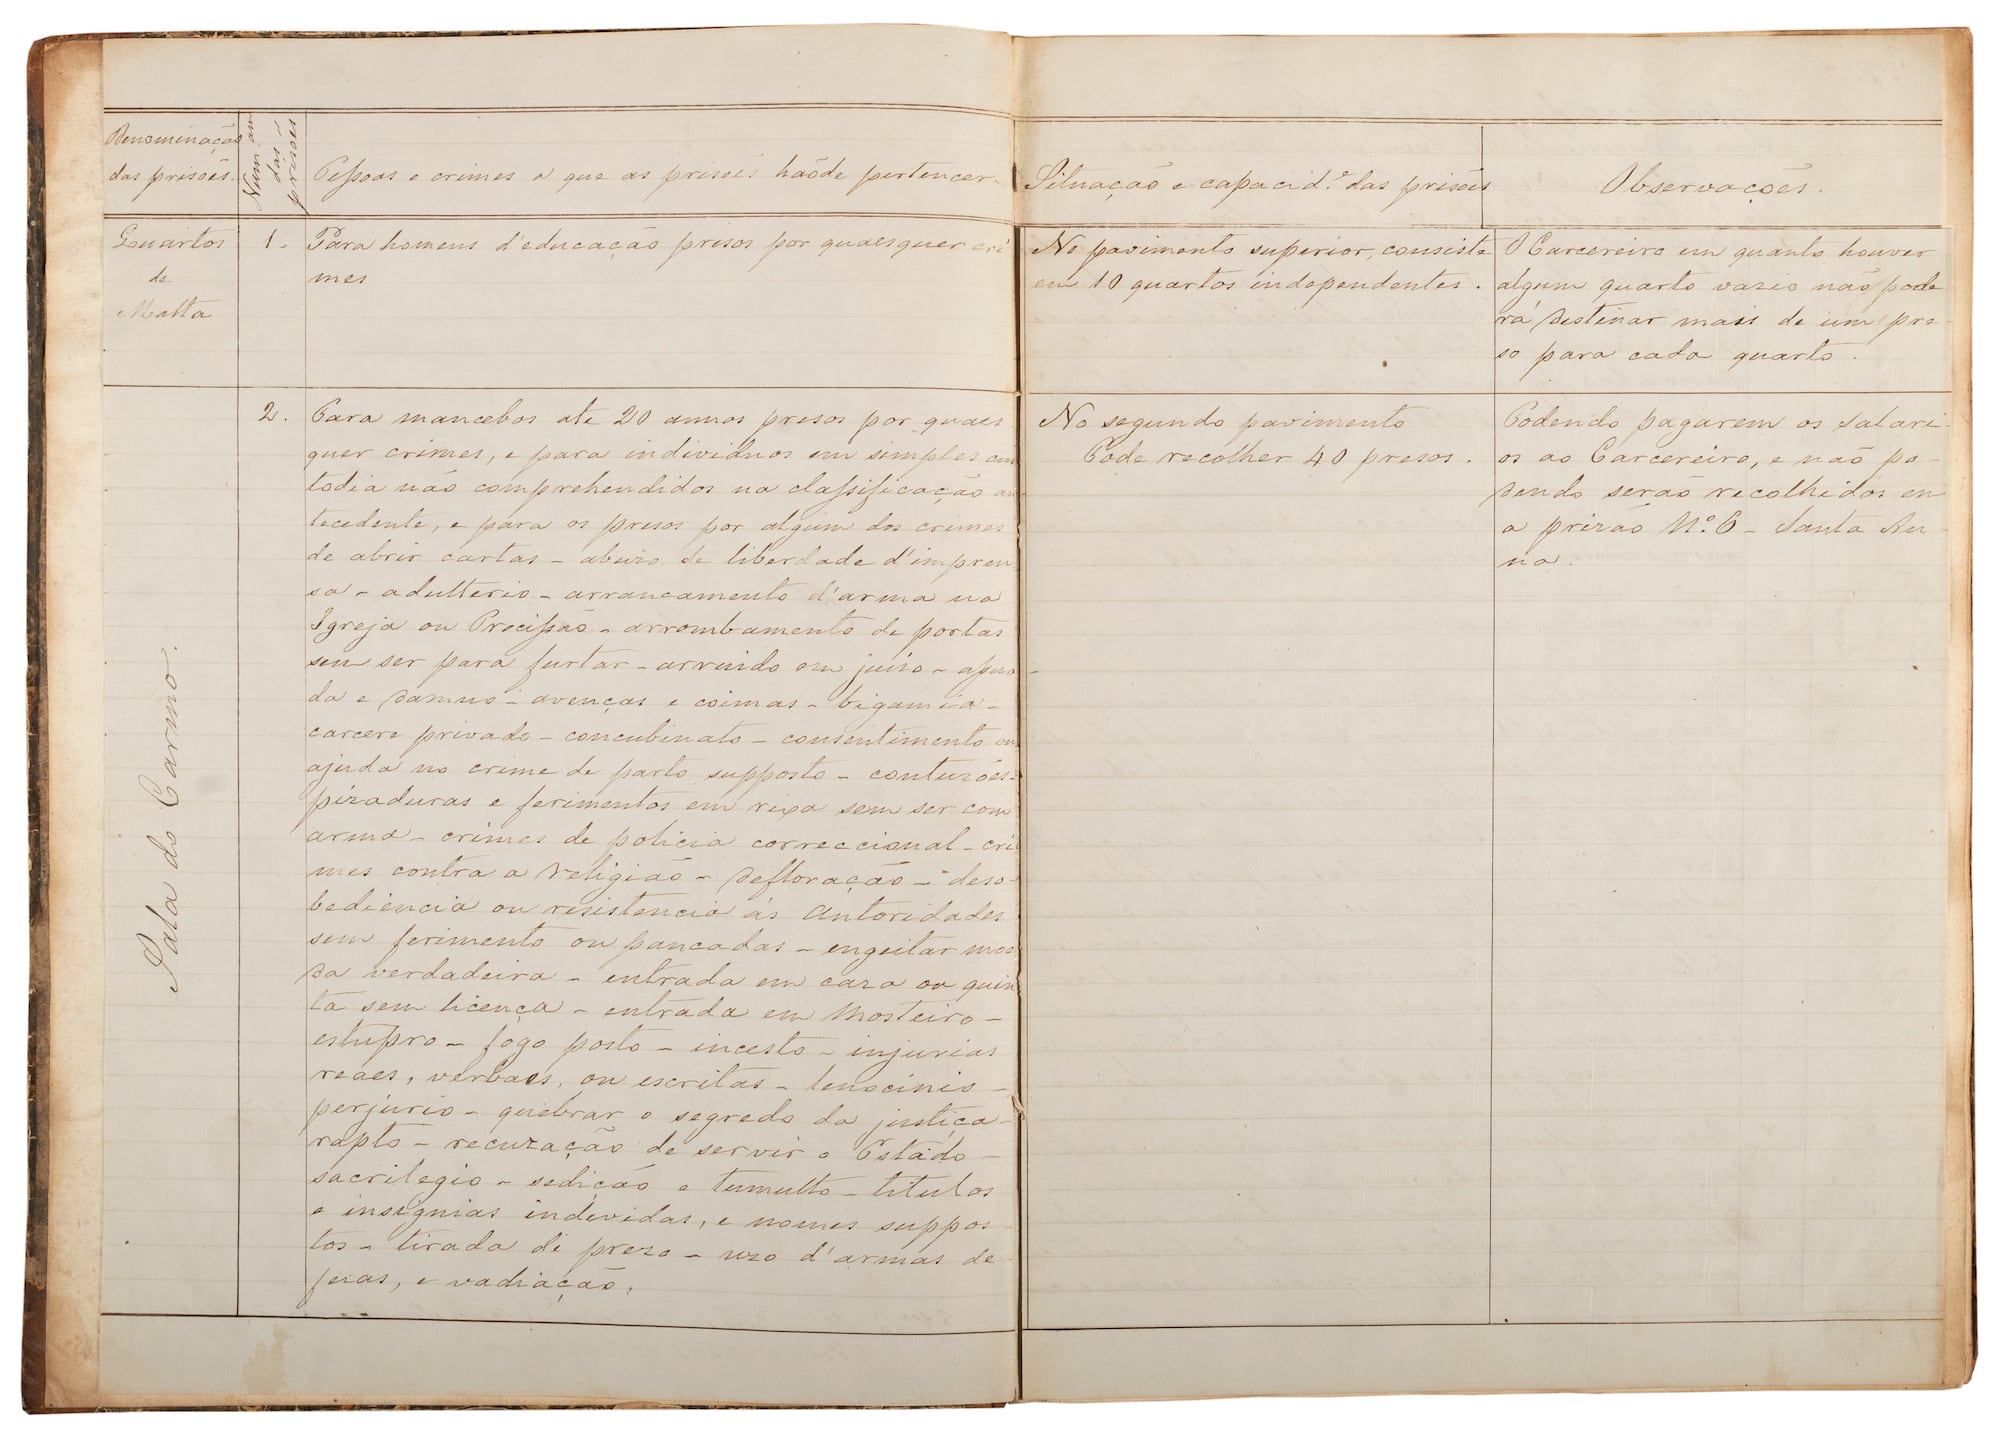 Denominação
das prisoēs.
Num.am
das
prisoēs
Pessoas e crimes a que as prisoēs haõde pertencer
Situação e capacid.e das prisoēs
Observaçoēs.
Quartos
de
Malta
1.
Para homens d'educação presos por quaesquer cri
mes
No pavimento superior, consiste
em 10 quartos independentes.
O Carcereiro em quanto houver
algum quarto vasio não pode
rá destinar mais de um pre-
so para cada quarto.
Sala do Carmo.
2.
Para mancebos ate 20 annos presos por quaes
quer crimes, e para individuos em simples cus
todia não comprehendidos na classificação an
tecedente, e para os presos por algum dos crimes
de abrir cartas - abuzo de liberdade d'impren
sa - adulterio - arrancamento d'arma na
Igreja ou Procissão - arrombamento de portas
sem ser para furtar - arruido em juizo - assua
da e damno - avenças e coimas - bigamia -
carcere privado - concubinato - consentimento ou
ajuda no crime de parto supposto - contuzões -
pizaduras e ferimentos em rixa sem ser com
arma - crimes de policia correccional - cri
mes contra a religião - defloração - deso-
bediencia ou resistencia ás Autoridades
sem ferimento ou pancadas - engeitar moe
da verdadeira - entrada em caza ou quin
ta sem licença - entrada em Mosteiro -
estupro - fogo posto - incesto - injurias
reaes, verbaes, ou escritas - lenocinio -
perjurio - quebrar o segredo da justiça -
rapto - recuzação de servir o Estado -
sacrilegio - sedição e tumulto - titulos
e insignias indevidas, e nomes suppos
tos - tirada de prezo - uzo d'armas de
fezas, e vadiação.
No segundo pavimento
Pode recolher 40 presos.
Podendo pagarem os salari-
os ao Carcereiro, e não po-
dendo serão recolhidos en
a prizão N.o 6 - Santa An-
na.